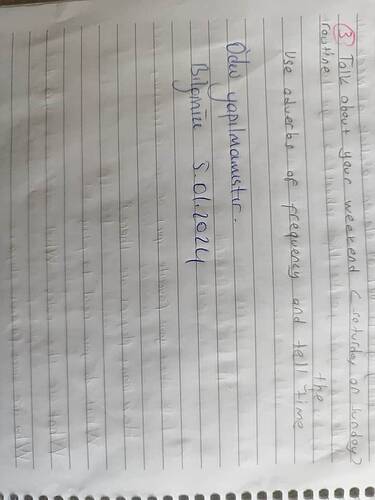 ③ Talk about your weekend (saturday or sunday)
routine
Use adverbs of frequency and tell the time
Ödev yapılmamıştır.
Bilginize 5.01.2024